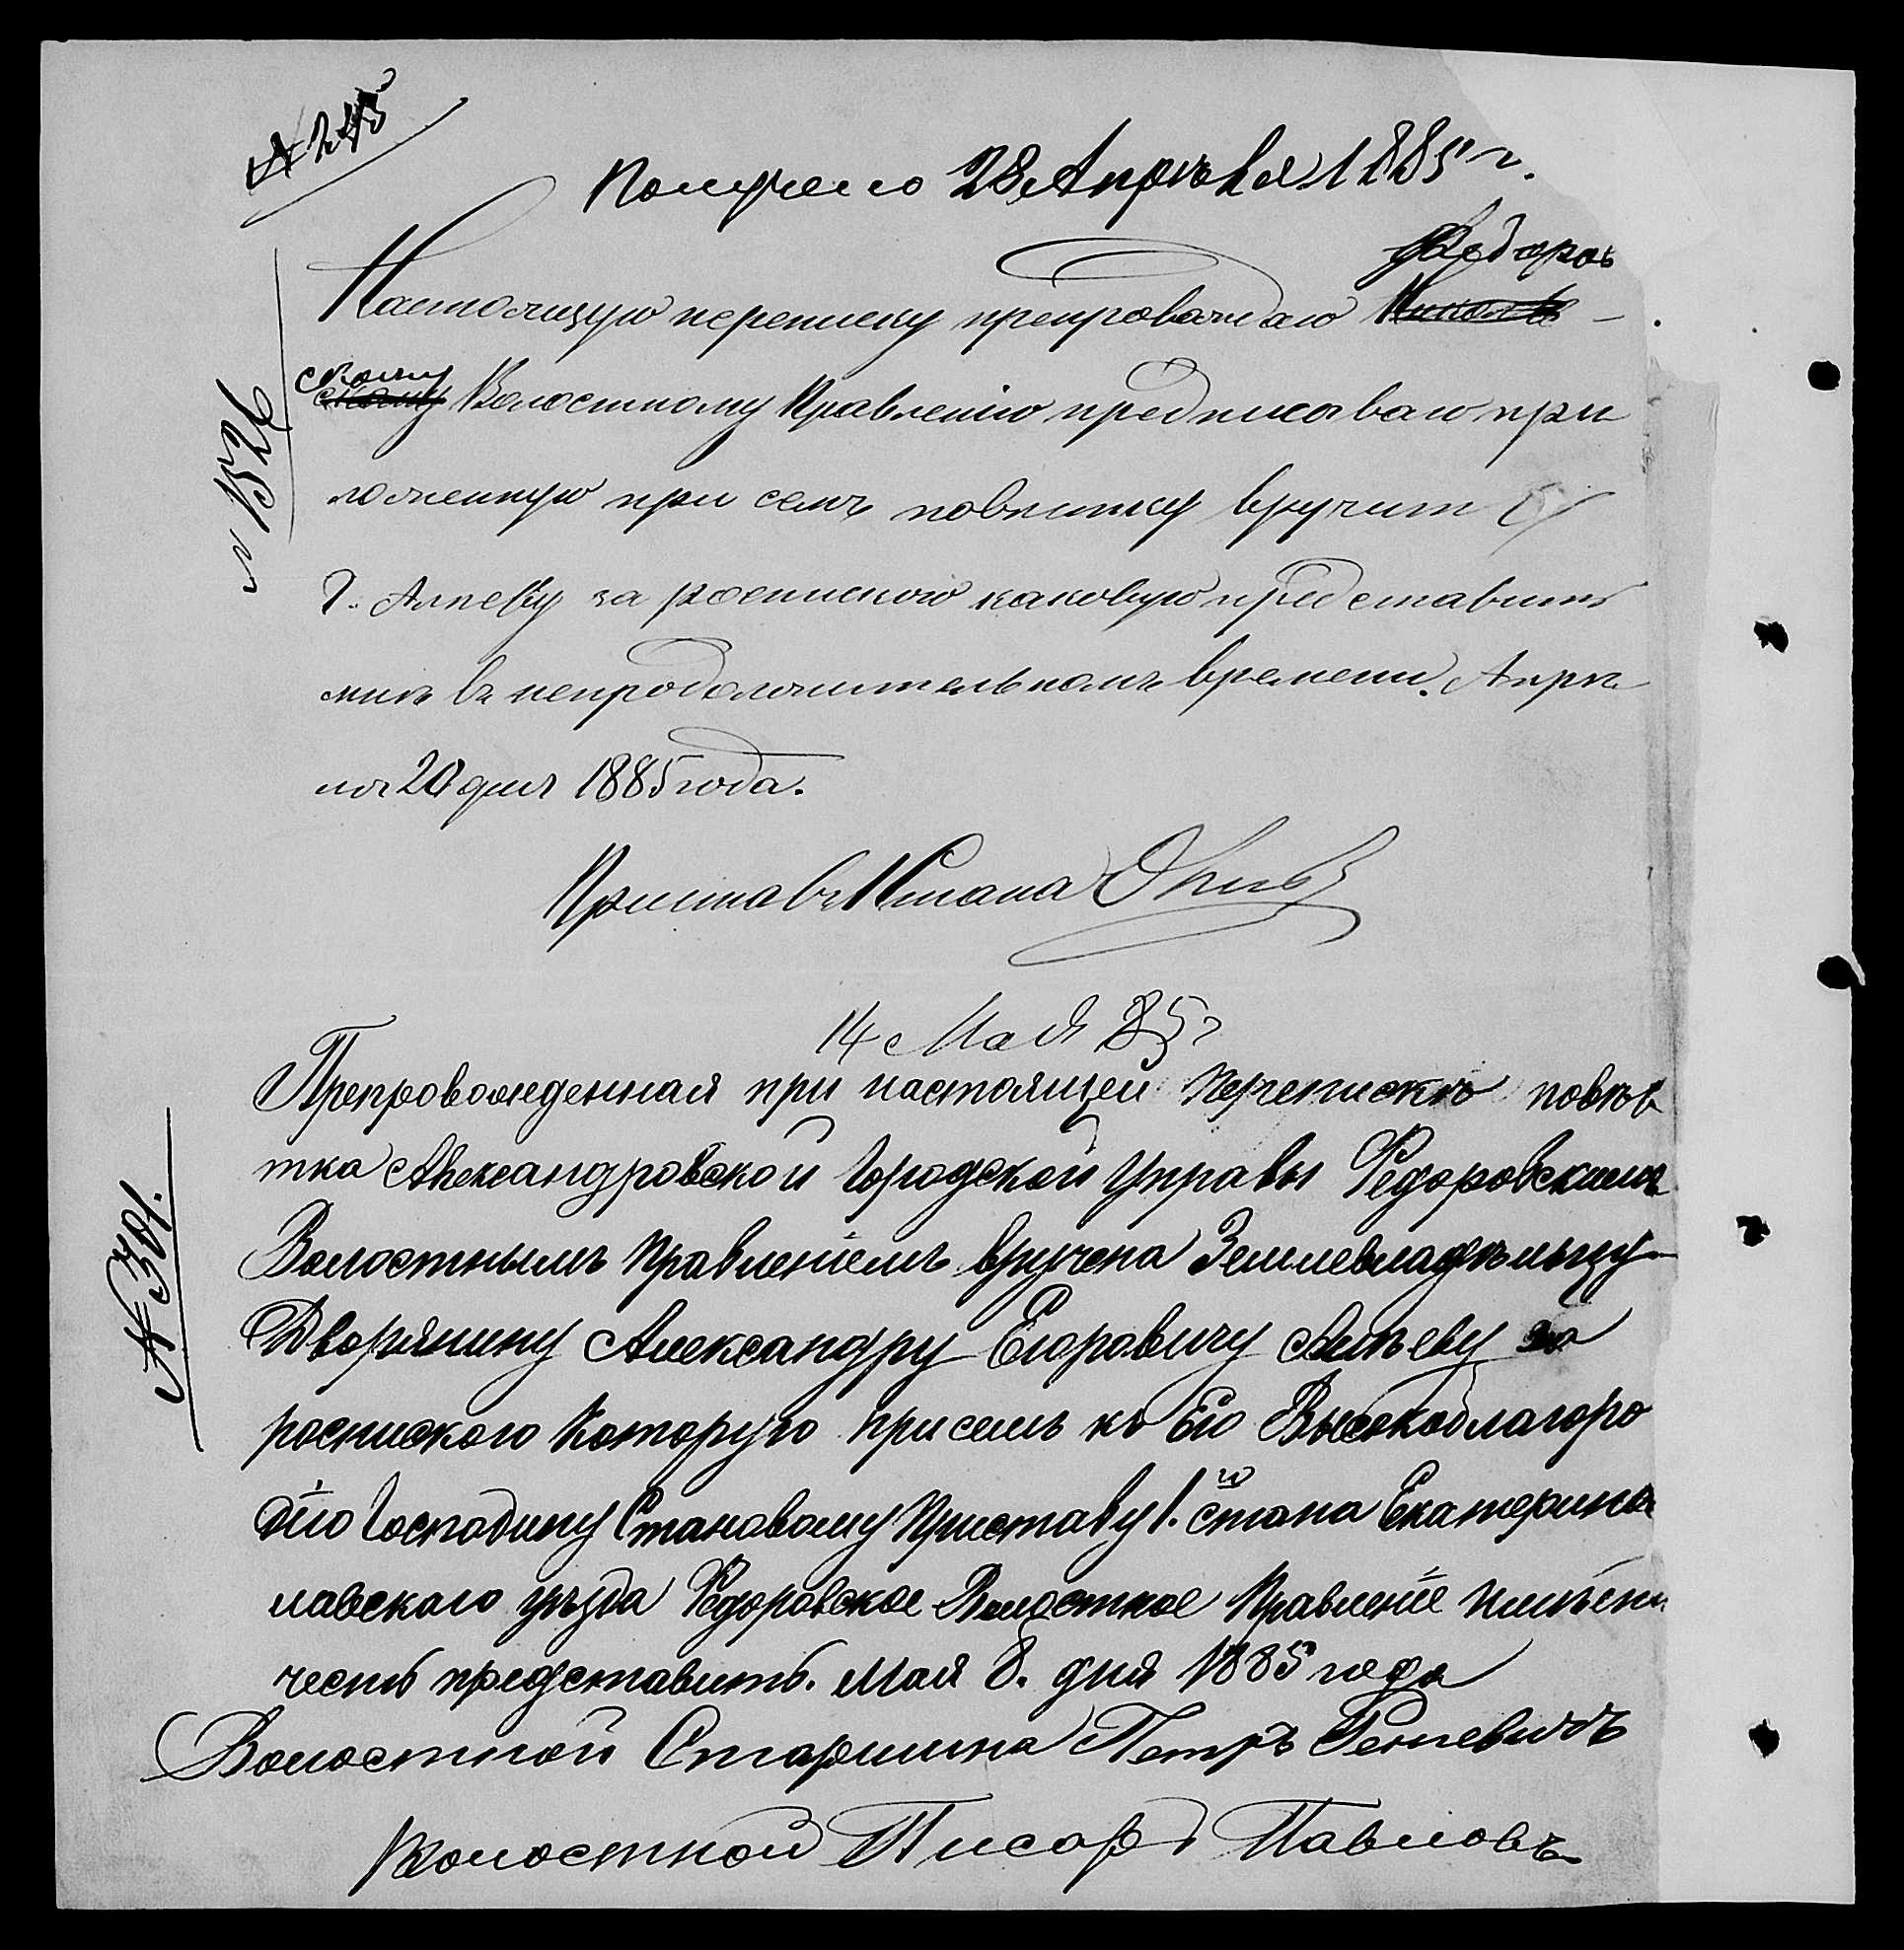 № 245
Получено 28 Апрѣля 1885 г.
Федоров
Настоящую переписку препровождаю Николаев-
скому
скому Волостному Правленію предписываю при
№ 1526
ложенную при семъ повѣстку вручить
Г. Алѣеву за роспискою каковую представить
мнѣ въ непродолжительномъ времени. Апрѣ
ля 20 дня 1885 года.
Приставъ 1 стана
14 Мая 85 г
Препровожденная при настоящей перепискѣ повѣс
тка Александровской Городской Управы Федоровскимъ
Волостнымъ Правленіемъ вручена Землевладѣльцу
№ 301.
Дворянину Александру Егоровичу Алѣеву за
роспискою которую при семъ къ Его Высокоблагоро
дію Господину Становому Приставу 1.й стана Екатеринос
лавскаго уѣзда Федоровское Волостное Правленіе имѣетъ
честь представить. Мая 8. дня 1885 года
Волостной Старшина Петръ
Волостной Писарь Павловъ